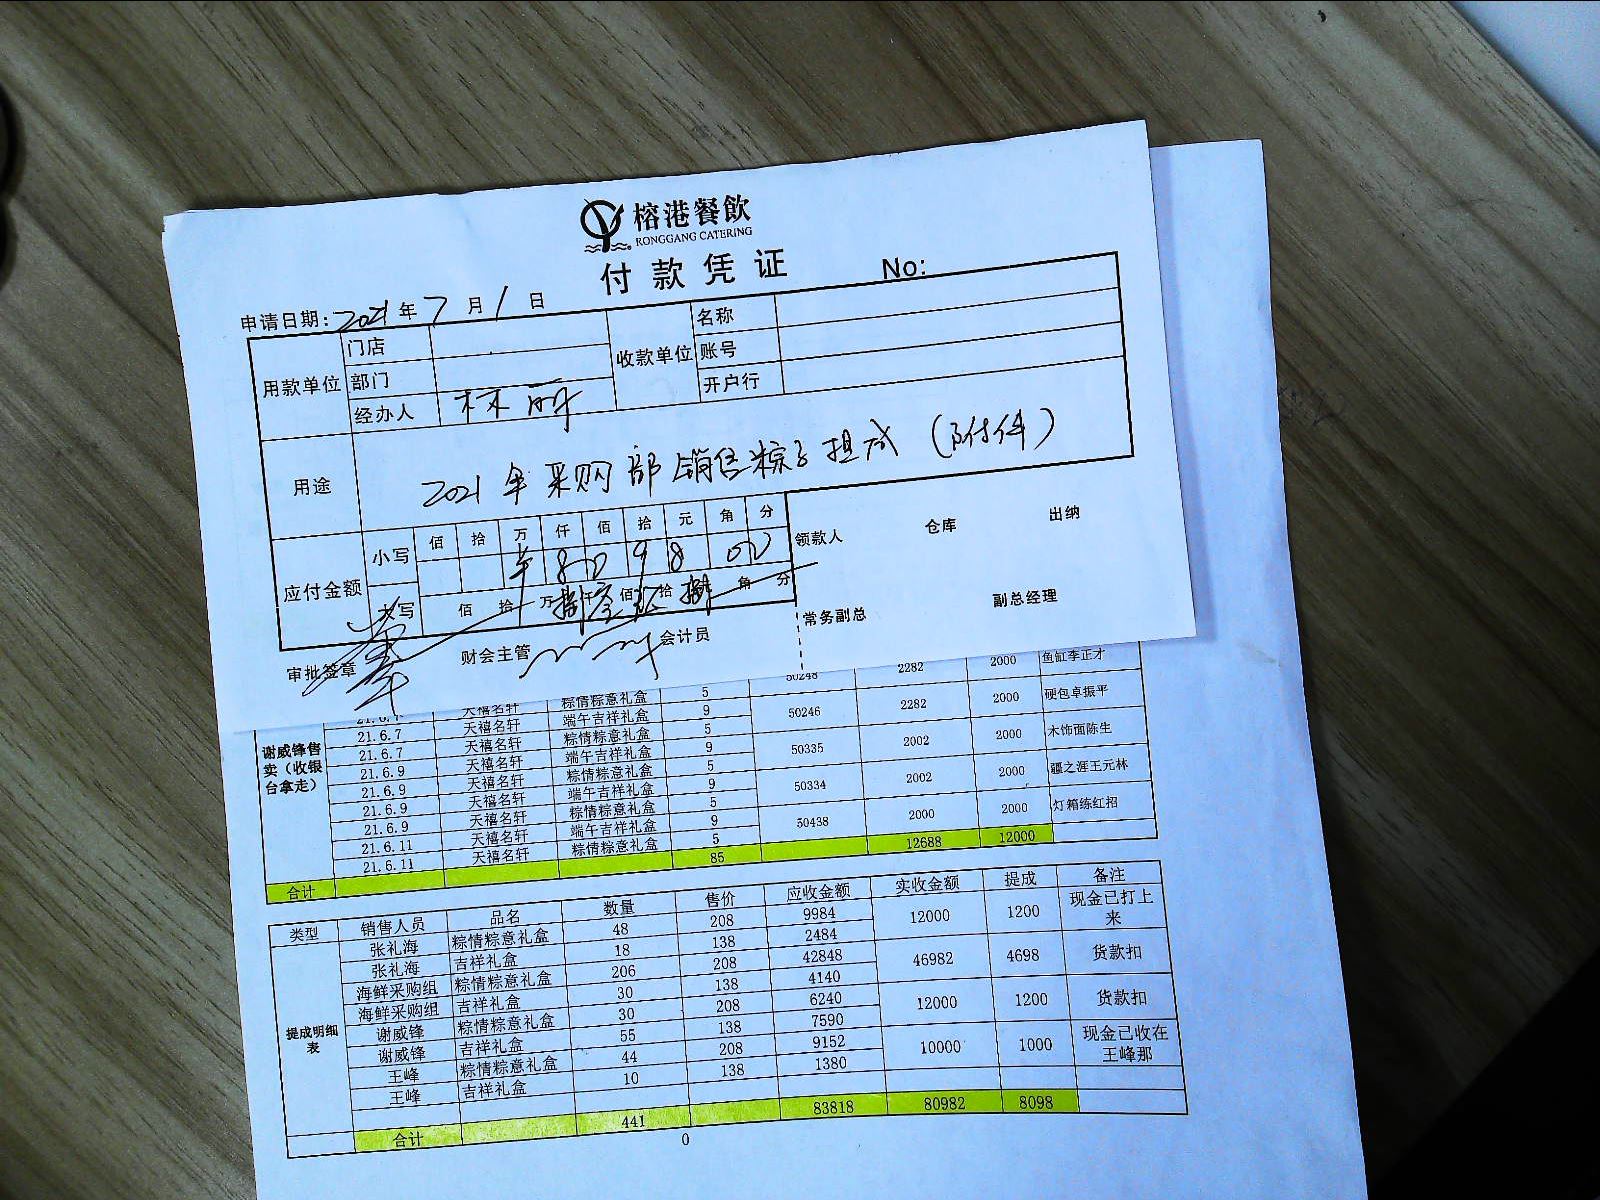 榕港餐飲
RONGGANG CATERING
付款凭证 No:
申请日期: 2021 年 7 月 1 日
用款单位 门店 收款单位 名称
部门 账号
经办人 林丽 开户行
用途 2021年采购部销售粽子提成（附件）
应付金额 小写 佰 拾 万 仟 佰 拾 元 角 分
¥ 8 0 9 8 00
大写 佰 拾 万 捌 仟 零 佰 玖 拾 捌 角 分
领款人 仓库 出纳
常务副总 副总经理
审批签章 财会主管 会计员
50248 2282 2000 鱼缸李正才
谢威锋售卖（收银台拿走）
天禧名轩 粽情粽意礼盒 5
21.6.7 天禧名轩 端午吉祥礼盒 9 50246 2282 2000 硬包卓振平
21.6.7 天禧名轩 粽情粽意礼盒 5
21.6.9 天禧名轩 端午吉祥礼盒 9 50335 2002 2000 木饰面陈生
21.6.9 天禧名轩 粽情粽意礼盒 5
21.6.9 天禧名轩 端午吉祥礼盒 9 50334 2002 2000 疆之涯王元林
21.6.9 天禧名轩 粽情粽意礼盒 5
21.6.11 天禧名轩 端午吉祥礼盒 9 50438 2000 2000 灯箱练红招
21.6.11 天禧名轩 粽情粽意礼盒 5
合计 85 12688 12000
类型 销售人员 品名 数量 售价 应收金额 实收金额 提成 备注
提成明细表
张礼海 粽情粽意礼盒 48 208 9984 12000 1200 现金已打上来
张礼海 吉祥礼盒 18 138 2484
海鲜采购组 粽情粽意礼盒 206 208 42848 46982 4698 货款扣
海鲜采购组 吉祥礼盒 30 138 4140
谢威锋 粽情粽意礼盒 30 208 6240 12000 1200 货款扣
谢威锋 吉祥礼盒 55 138 7590
王峰 粽情粽意礼盒 44 208 9152 10000 1000 现金已收在王峰那
王峰 吉祥礼盒 10 138 1380
合计 441 83818 80982 8098
0